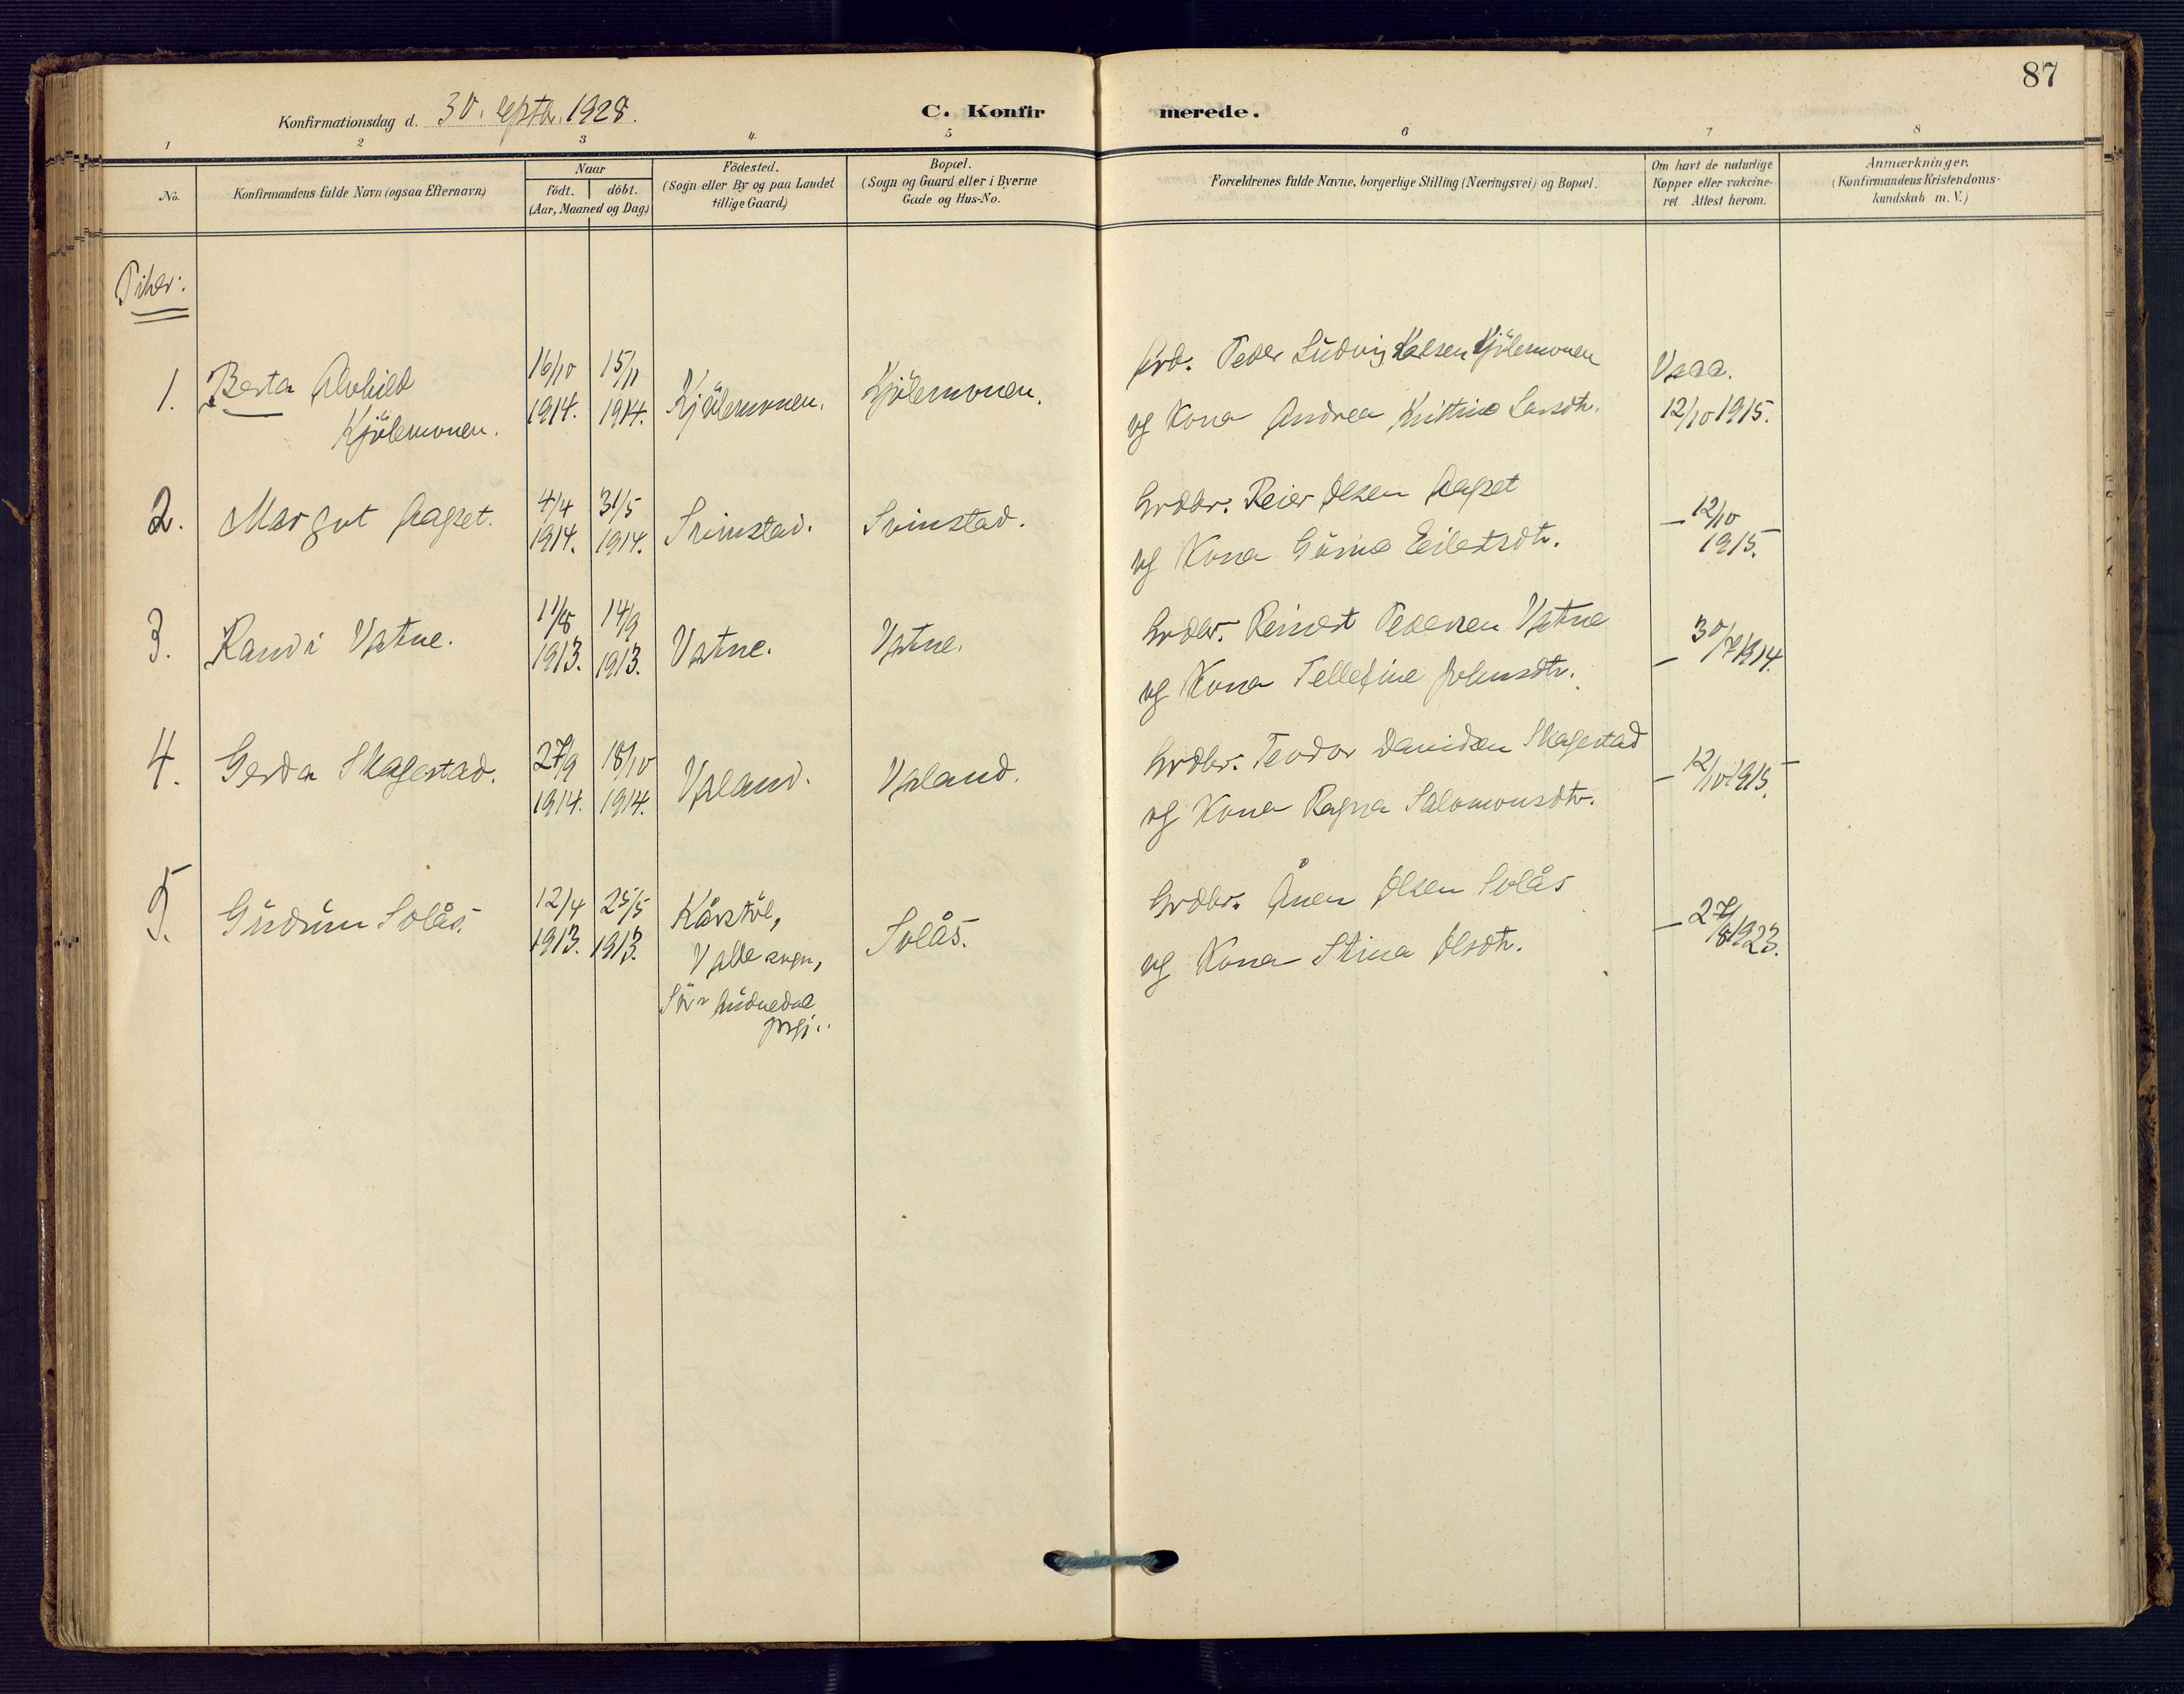 87
Konfirmationsdag d. 30. septbr. 1928.
C. Konfirmerede.
1 2 3 4. 5 6 7 8
No.
Konfirmandens fulde Navn (ogsaa Efternavn)
Naar
födt. döbt.
(Aar, Maaned og Dag)
Födested.
(Sogn eller By og paa Landet
tillige Gaard)
Bopæl.
(Sogn og Gaard eller i Byerne
Gade og Hus-No.
Forældrenes fulde Navne, borgerlige Stilling (Næringsvei) og Bopæl.
Om havt de naturlige
Kopper eller vakcine-
ret. Attest herom.
Anmærkninger.
(Konfirmandens Kristendoms-
kundskab m. V.)
Piker:
1. Berta Alvhild
Kjölemonen.
16/10
1914.
15/11
1914.
Kjölemonen.
Kjölemonen.
Arb. Peder Ludvig Kjölemonen
og Kona Andrea Kristine Larsdtr.
Vsaa.
12/10 1915.
2. Margot Aagset.
4/4
1914.
31/5
1914.
Svinstad.
Svinstad.
Grdbr. Reier Olsen Aagset
og Kona Gurine Eilertsdtr.
— 12/10
1915.
3. Randi Vatne.
11/8
1913.
14/9
1913.
Vatne.
Vatne.
Grdbr. Reinert Pedersen Vatne
og Kona Tellefine Johnsdtr.
— 30/7 1914.
4. Gerda Skagestad.
27/9
1914.
18/10
1914.
Valand.
Valand.
Grdbr. Teodor Davidsen Skagestad
og Kona Ragna Salomonsdtr.
— 12/10 1915.
5. Gudrun Solås.
12/4
1913.
25/5
1913.
Kårstöl,
Valle sogn,
Sör-Audnedal
prgj..
Solås.
Grdbr. Ånen Olsen Solås
og Kona Stina Olsdtr.
— 27/8 1923.